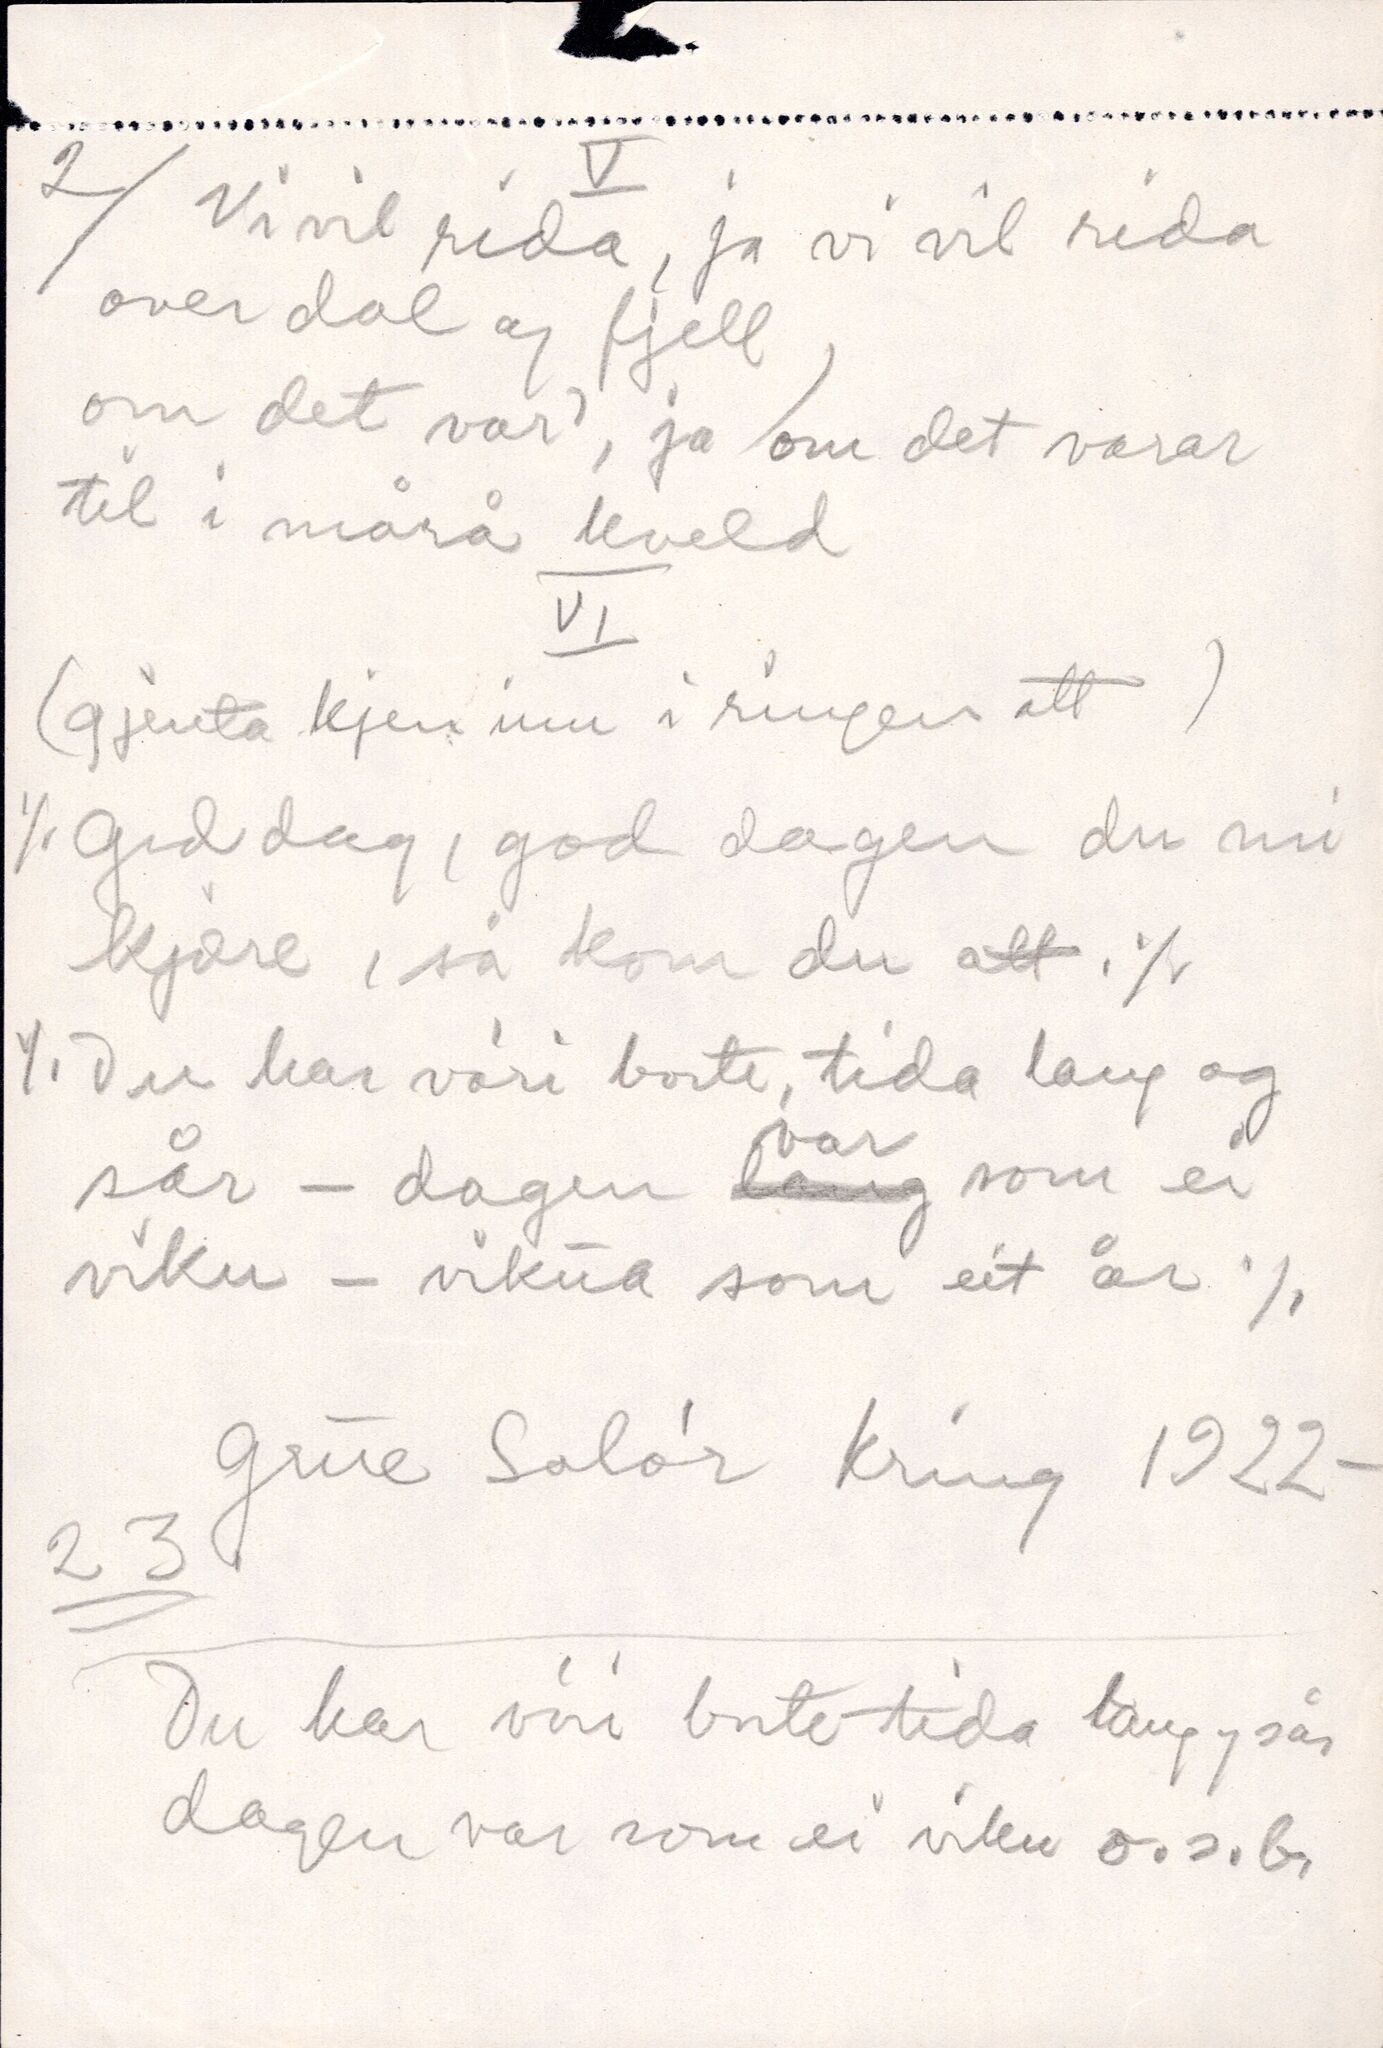 2/ V
Vi vil rida, ja vi vil rida
over dal og fjell,
om det var', ja om det varar
til i mårå kveld
VI
(gjenta kjem inn i ringen att)
·/. God dag, god dagen du mi
kjære, så kom du att. ·/.
·/. Du har vöri borte, tida lang og
sår - dagen var
lang som ei
viku - vikua som eit år ·/.
Grue Solör Kring 1922-
23
Du har vöri borte tida lang og sår
dagen var som ei viku o.s.b.